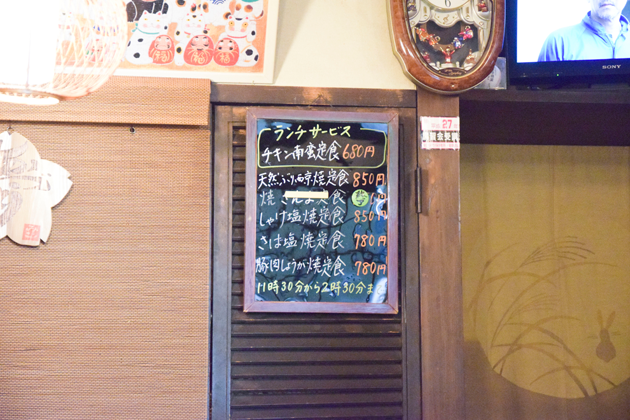 ランチサービス
チキン南蛮定食 680円
天然ぶり西京焼定食 850円
焼さんま定食 円
しゃけ塩焼定食 850円
さば塩焼定食 780円
豚肉しょうが焼定食 780円
11時30分から2時30分まで
SONY
27